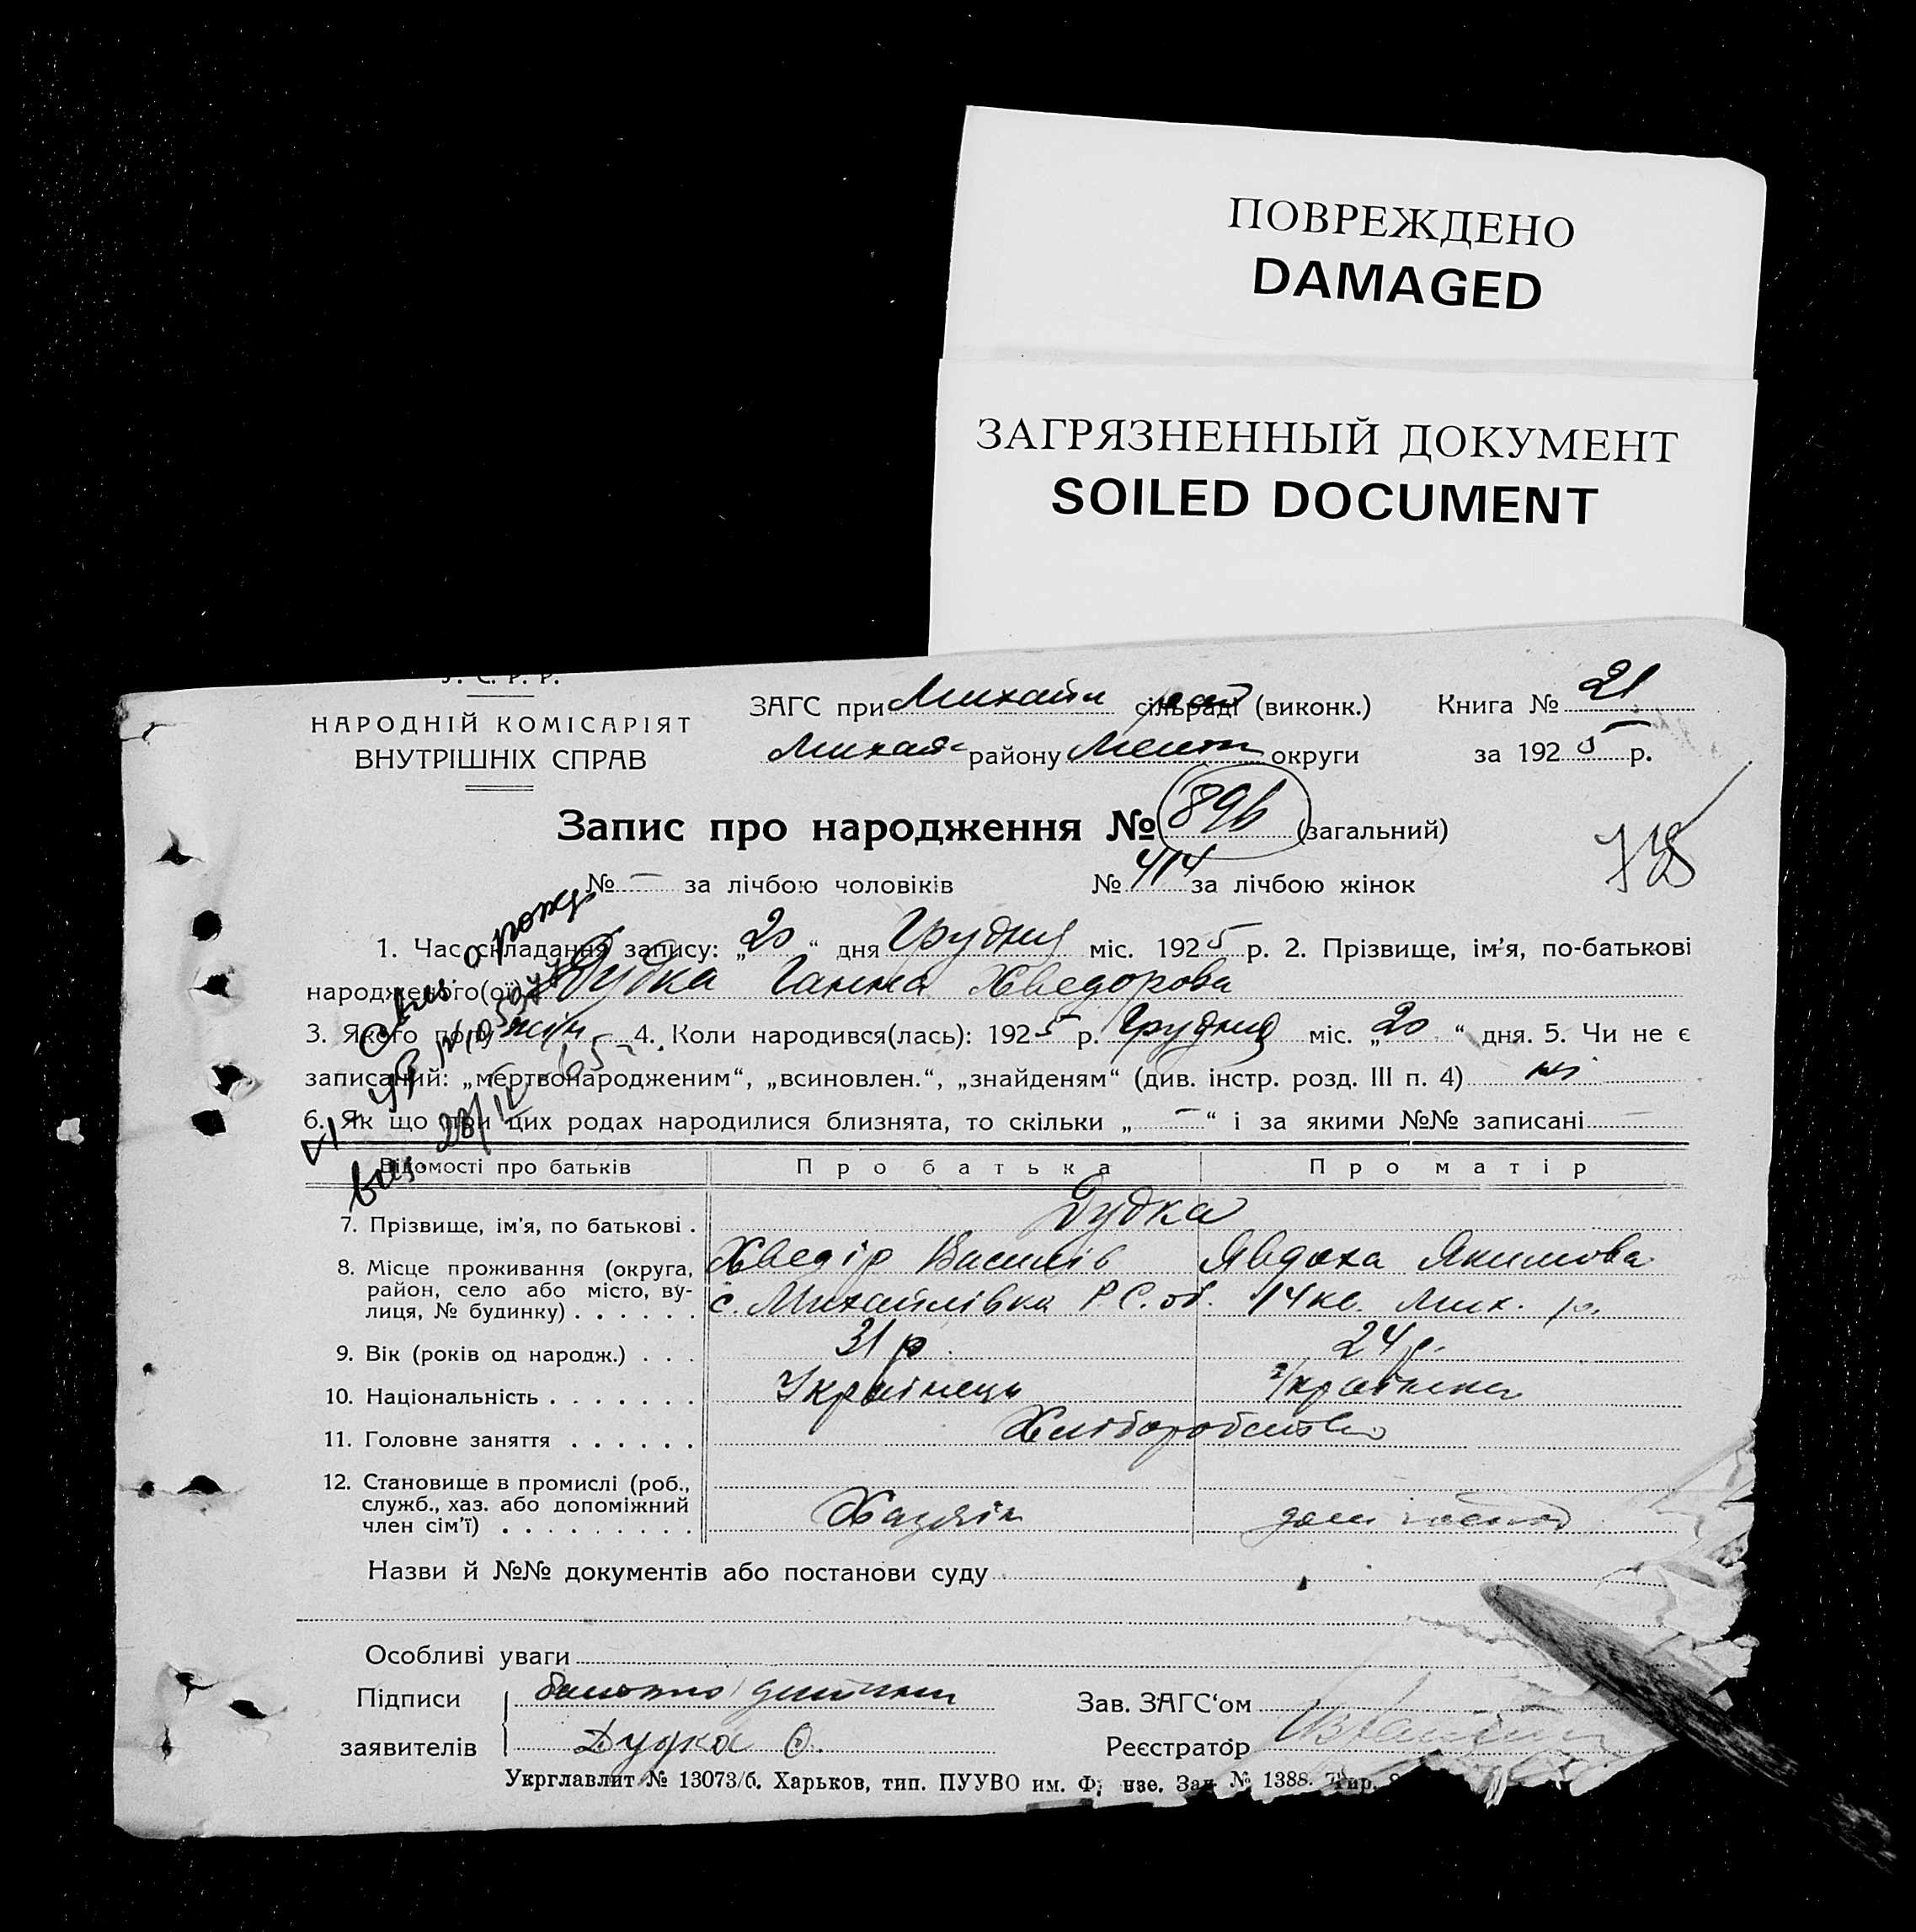 ПОВРЕЖДЕНО
DAMAGED
ЗАГРЯЗНЕННЫЙ ДОКУМЕНТ
SOILED DOCUMENT
У. С. Р. Р.
НАРОДНІЙ КОМІСАРІЯТ
ВНУТРІШНІХ СПРАВ
ЗАГС при Михайл сільраді (виконк.)
Книга № 21
района Михай району Меліт округи
за 1925 р.
Запис про народження № 896 (загальний)
738
№ — за лічбою чоловіків № 414 за лічбою жінок
1. Час складання запису: „20“ дня Грудня міс. 1925 р. 2. Прізвище, ім'я, по-батькові
народженого(ої) Дудка Ганна Хведорова
3. Якого полу жін 4. Коли народився(лась): 1925 р. Грудня міс. „20“ дня. 5. Чи не є
записаний: „мертвонародженим“, „всиновлен.“, „знайденям“ (див. інстр. розд. III п. 4) ні
6. Як що при цих родах народилися близнята, то скільки „—“ і за якими №№ записані —
Відомості про батьків Про батька Про матір
7. Прізвище, ім'я, по батькові . Дудка
Хведір Василів Явдоха Якимова
8. Місце проживання (округа, район, село або місто, вулиця, № будинку) . . . . . . с. Михайлівка Р.С. об. 14 кв. Мих. р.
9. Вік (років од народж.) . . . 31 р. 24 р.
10. Національність . . . . . . . Українець Українка
11. Головне заняття . . . . . . Хліборобство
12. Становище в промислі (роб.,
служб., хаз. або допоміжний
член сім'ї) . . . . . . . . . Хазяїн дом господ
Назви й №№ документів або постанови суду
Особливі уваги
Підписи батько дитини
заявителів Дудка О.
Зав. ЗАГС'ом
Реєстратор
Укрглавлит № 13073/б. Харьков, тип. ПУУВО им. Фрунзе. Зак. № 1388. Тир.